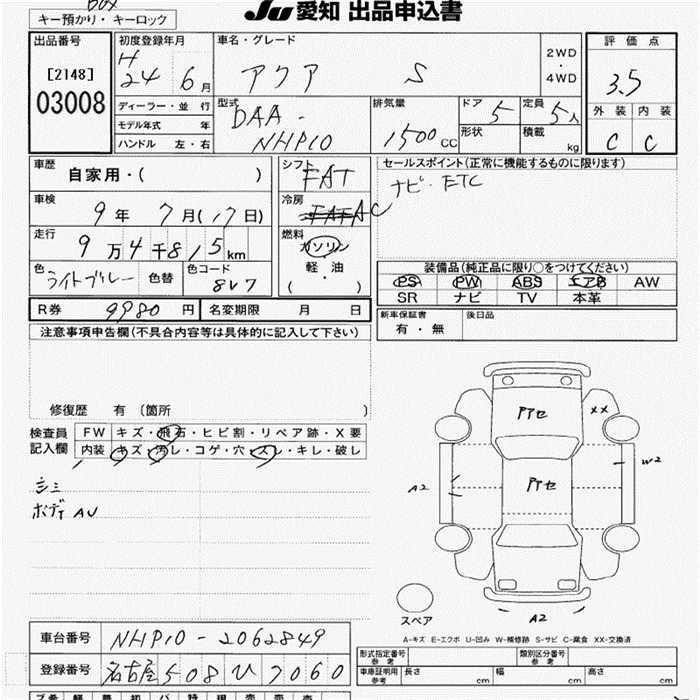 BOX
キー預かり・キーロック
JU 愛知 出品申込書
出品番号
[2148]
03008
初度登録年月
H
24 6月
車名・グレード
アクア S
2WD
・
4WD
評価点
3.5
外装 内装
C C
ディーラー・並 行
モデル年式 年
ハンドル 左・右
型式
DAA-
NHP10
排気量
1500 CC
ドア 5
形状
定員 5人
積載 kg
車歴 自家用・( )
車検 9年 7月(17日)
走行 9万4千815km
色 ライトブルー 色替 色コード 8V7
シフト
FAT
冷房
AC
燃料
ガソリン
・
軽油
( ・ )
セールスポイント(正常に機能するものに限ります)
ナビ・ETC
装備品(純正品に限り○をつけてください)
PS PW ABS エアB AW
SR ナビ TV 本革
R券 9980円 名変期限 月 日
新車保証書
有・無
後日品
注意事項申告欄(不具合内容等は具体的に記入して下さい)
修復歴 有 〔箇所 〕
検査員
記入欄
FW キズ・飛石・ヒビ割・リペア跡・X要
内装 キズ・汚レ・コゲ・穴・スレ・キレ・破レ
ボディ AU
アセ
XX
アセ
A2
W2
A2
スペア
A-キズ E-エクボ U-凹み W-補修跡 S-サビ C-腐食 XX-交換済
車台番号 NHP10-2062849
登録番号 名古屋 508 ひ 7060
形式指定番号
参考
類別区分番号
参考
車庫証明用
参考
長さ cm 幅 cm 高さ cm